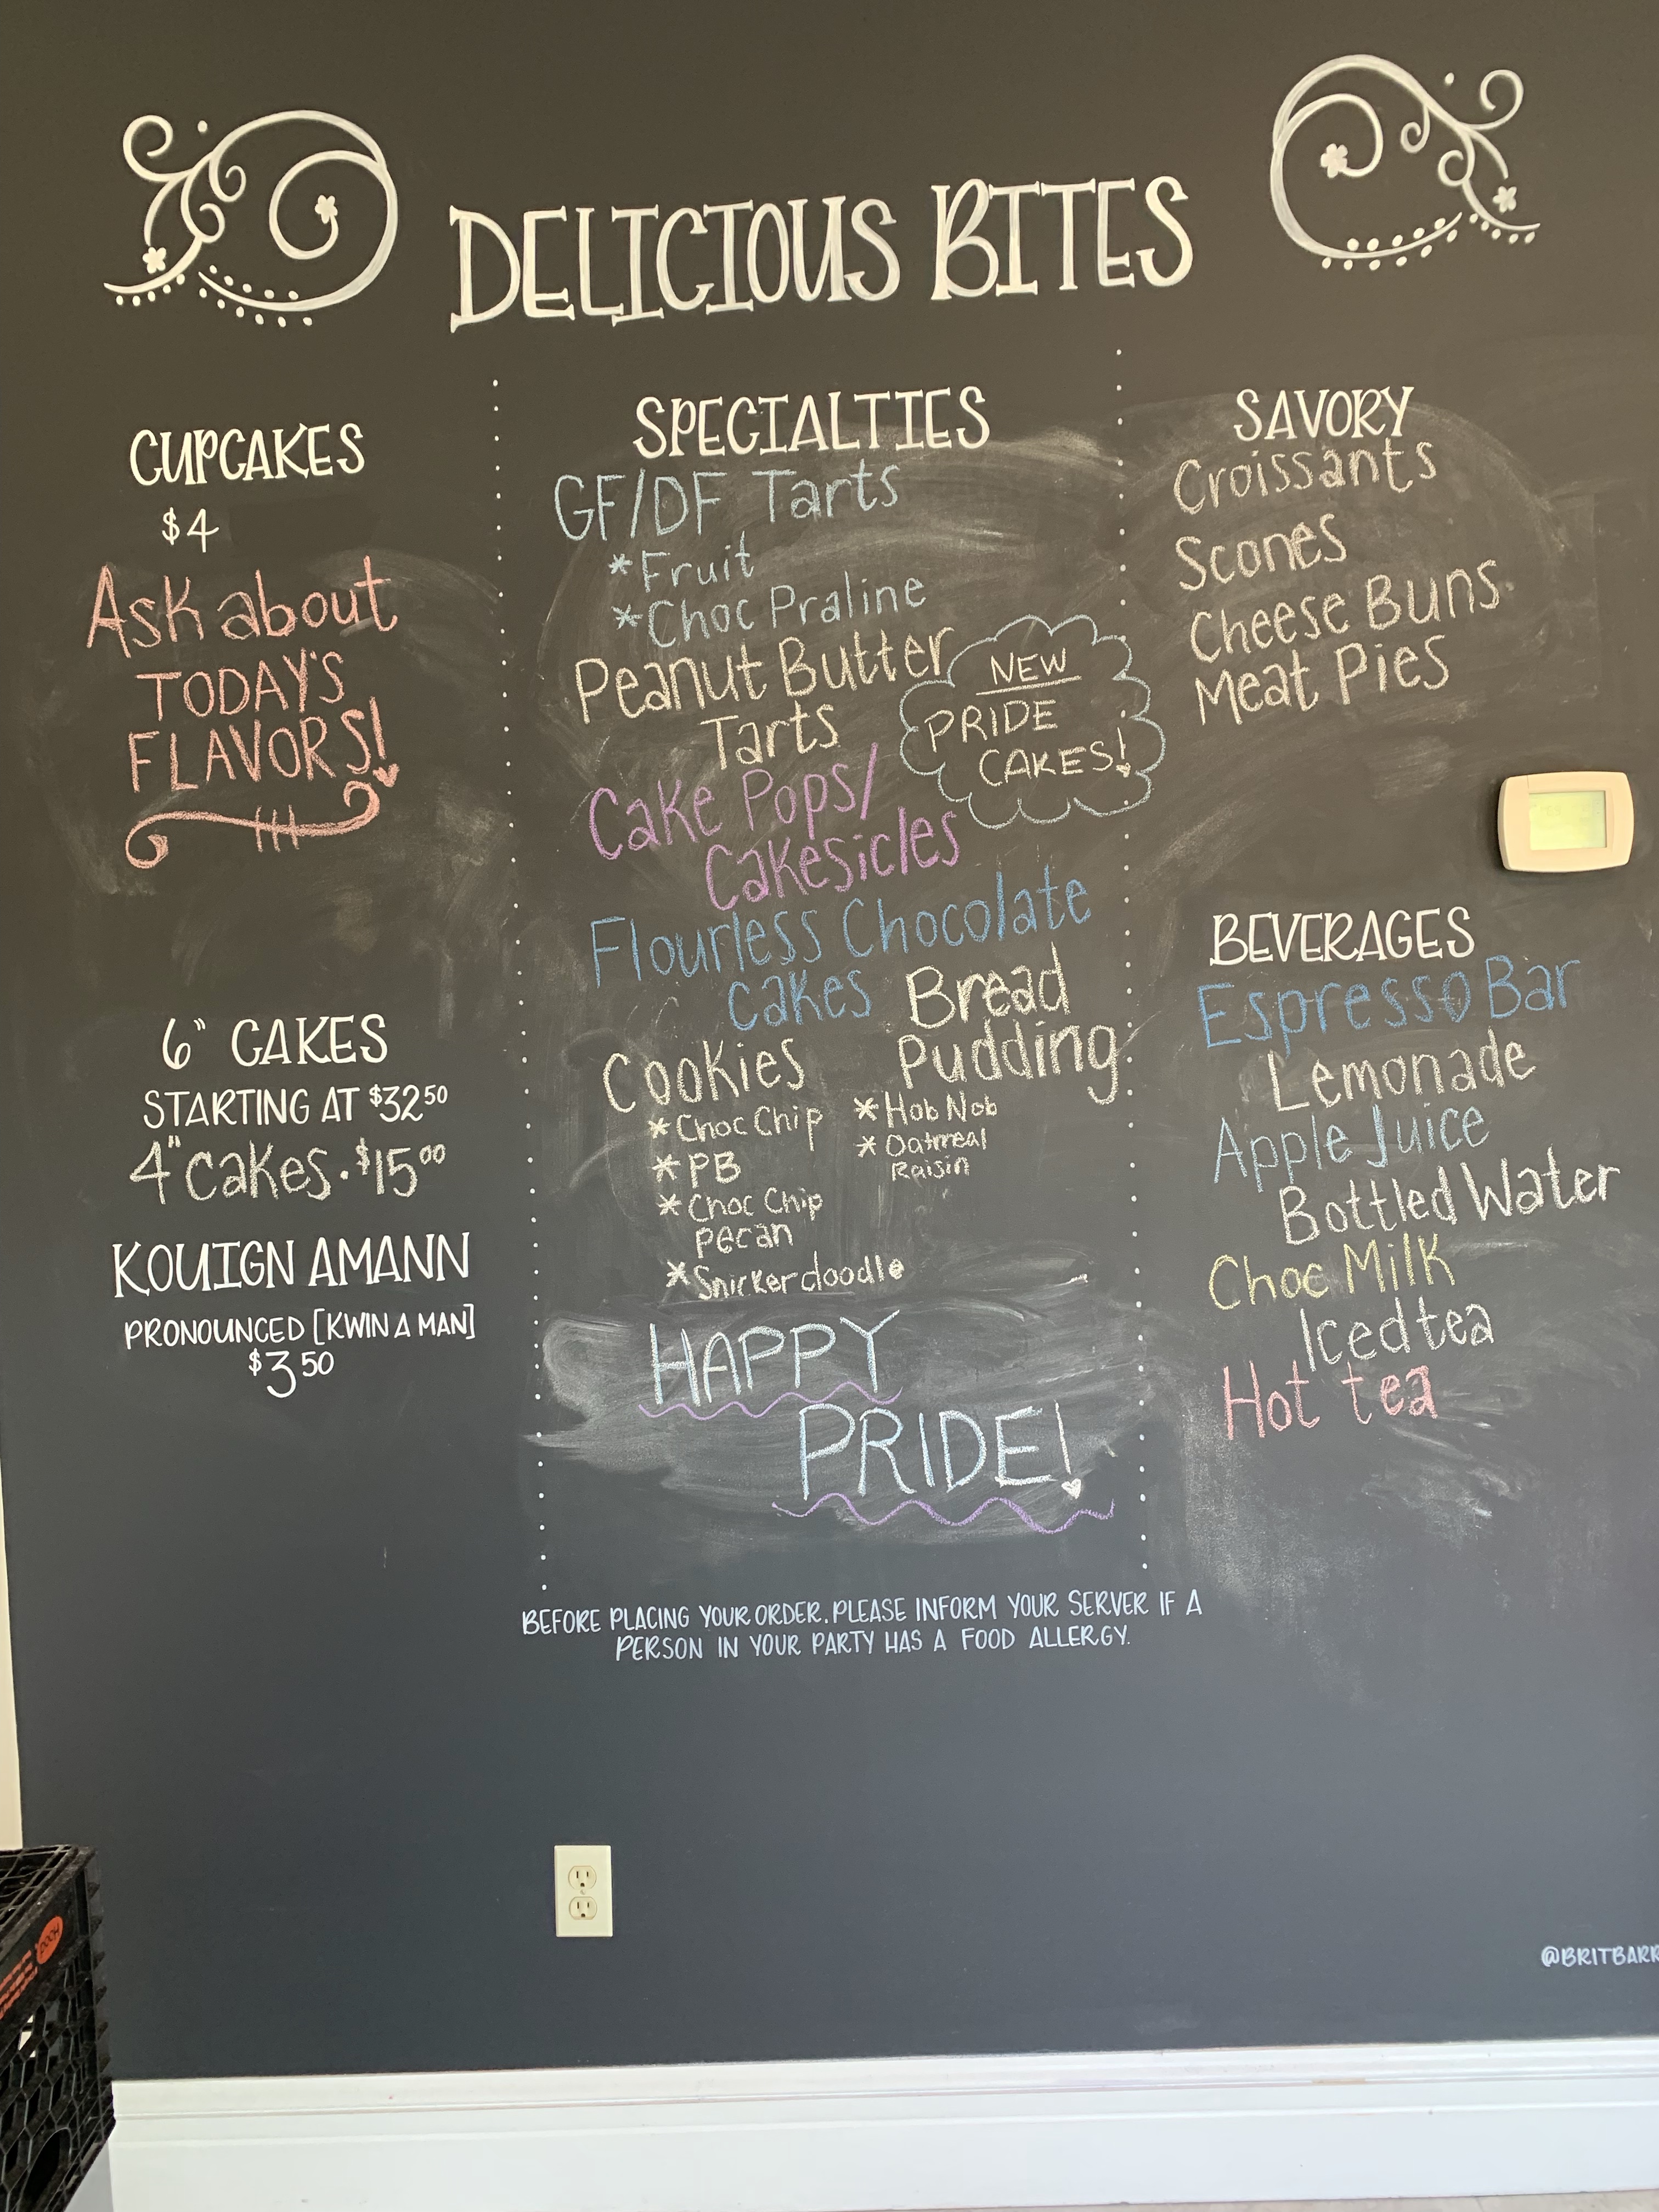 DELICIOUS BITES
CUPCAKES
$4
Ask about
TODAY'S
FLAVORS!
6" CAKES
STARTING AT $32.50
4" Cakes · $15.00
KOUIGN AMANN
PRONOUNCED [KWIN A MAN]
$3.50
SPECIALTIES
GF/DF Tarts
*Fruit
*Choc Praline
Peanut Butter
Tarts
NEW
PRIDE
CAKES!
Cake Pops/
Cakesicles
Flourless Chocolate
Cakes
Bread
Pudding
Cookies
*Choc Chip
*PB
*Choc Chip
Pecan
*Snickerdoodle
*Hob Nob
*Oatmeal
Raisin
HAPPY
PRIDE!
SAVORY
Croissants
Scones
Cheese Buns
Meat Pies
BEVERAGES
Espresso Bar
Lemonade
Apple Juice
Bottled Water
Choc Milk
Iced tea
Hot tea
BEFORE PLACING YOUR ORDER, PLEASE INFORM YOUR SERVER IF A
PERSON IN YOUR PARTY HAS A FOOD ALLERGY.
@BRITBARR